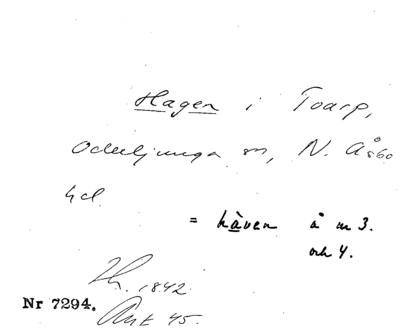 Hagen i Toarp,
Oderljunga sn, N. Åsbo
hd.
= håven å m 3.
och 4.
Th. 1842
Ant 45.
Nr 7294.